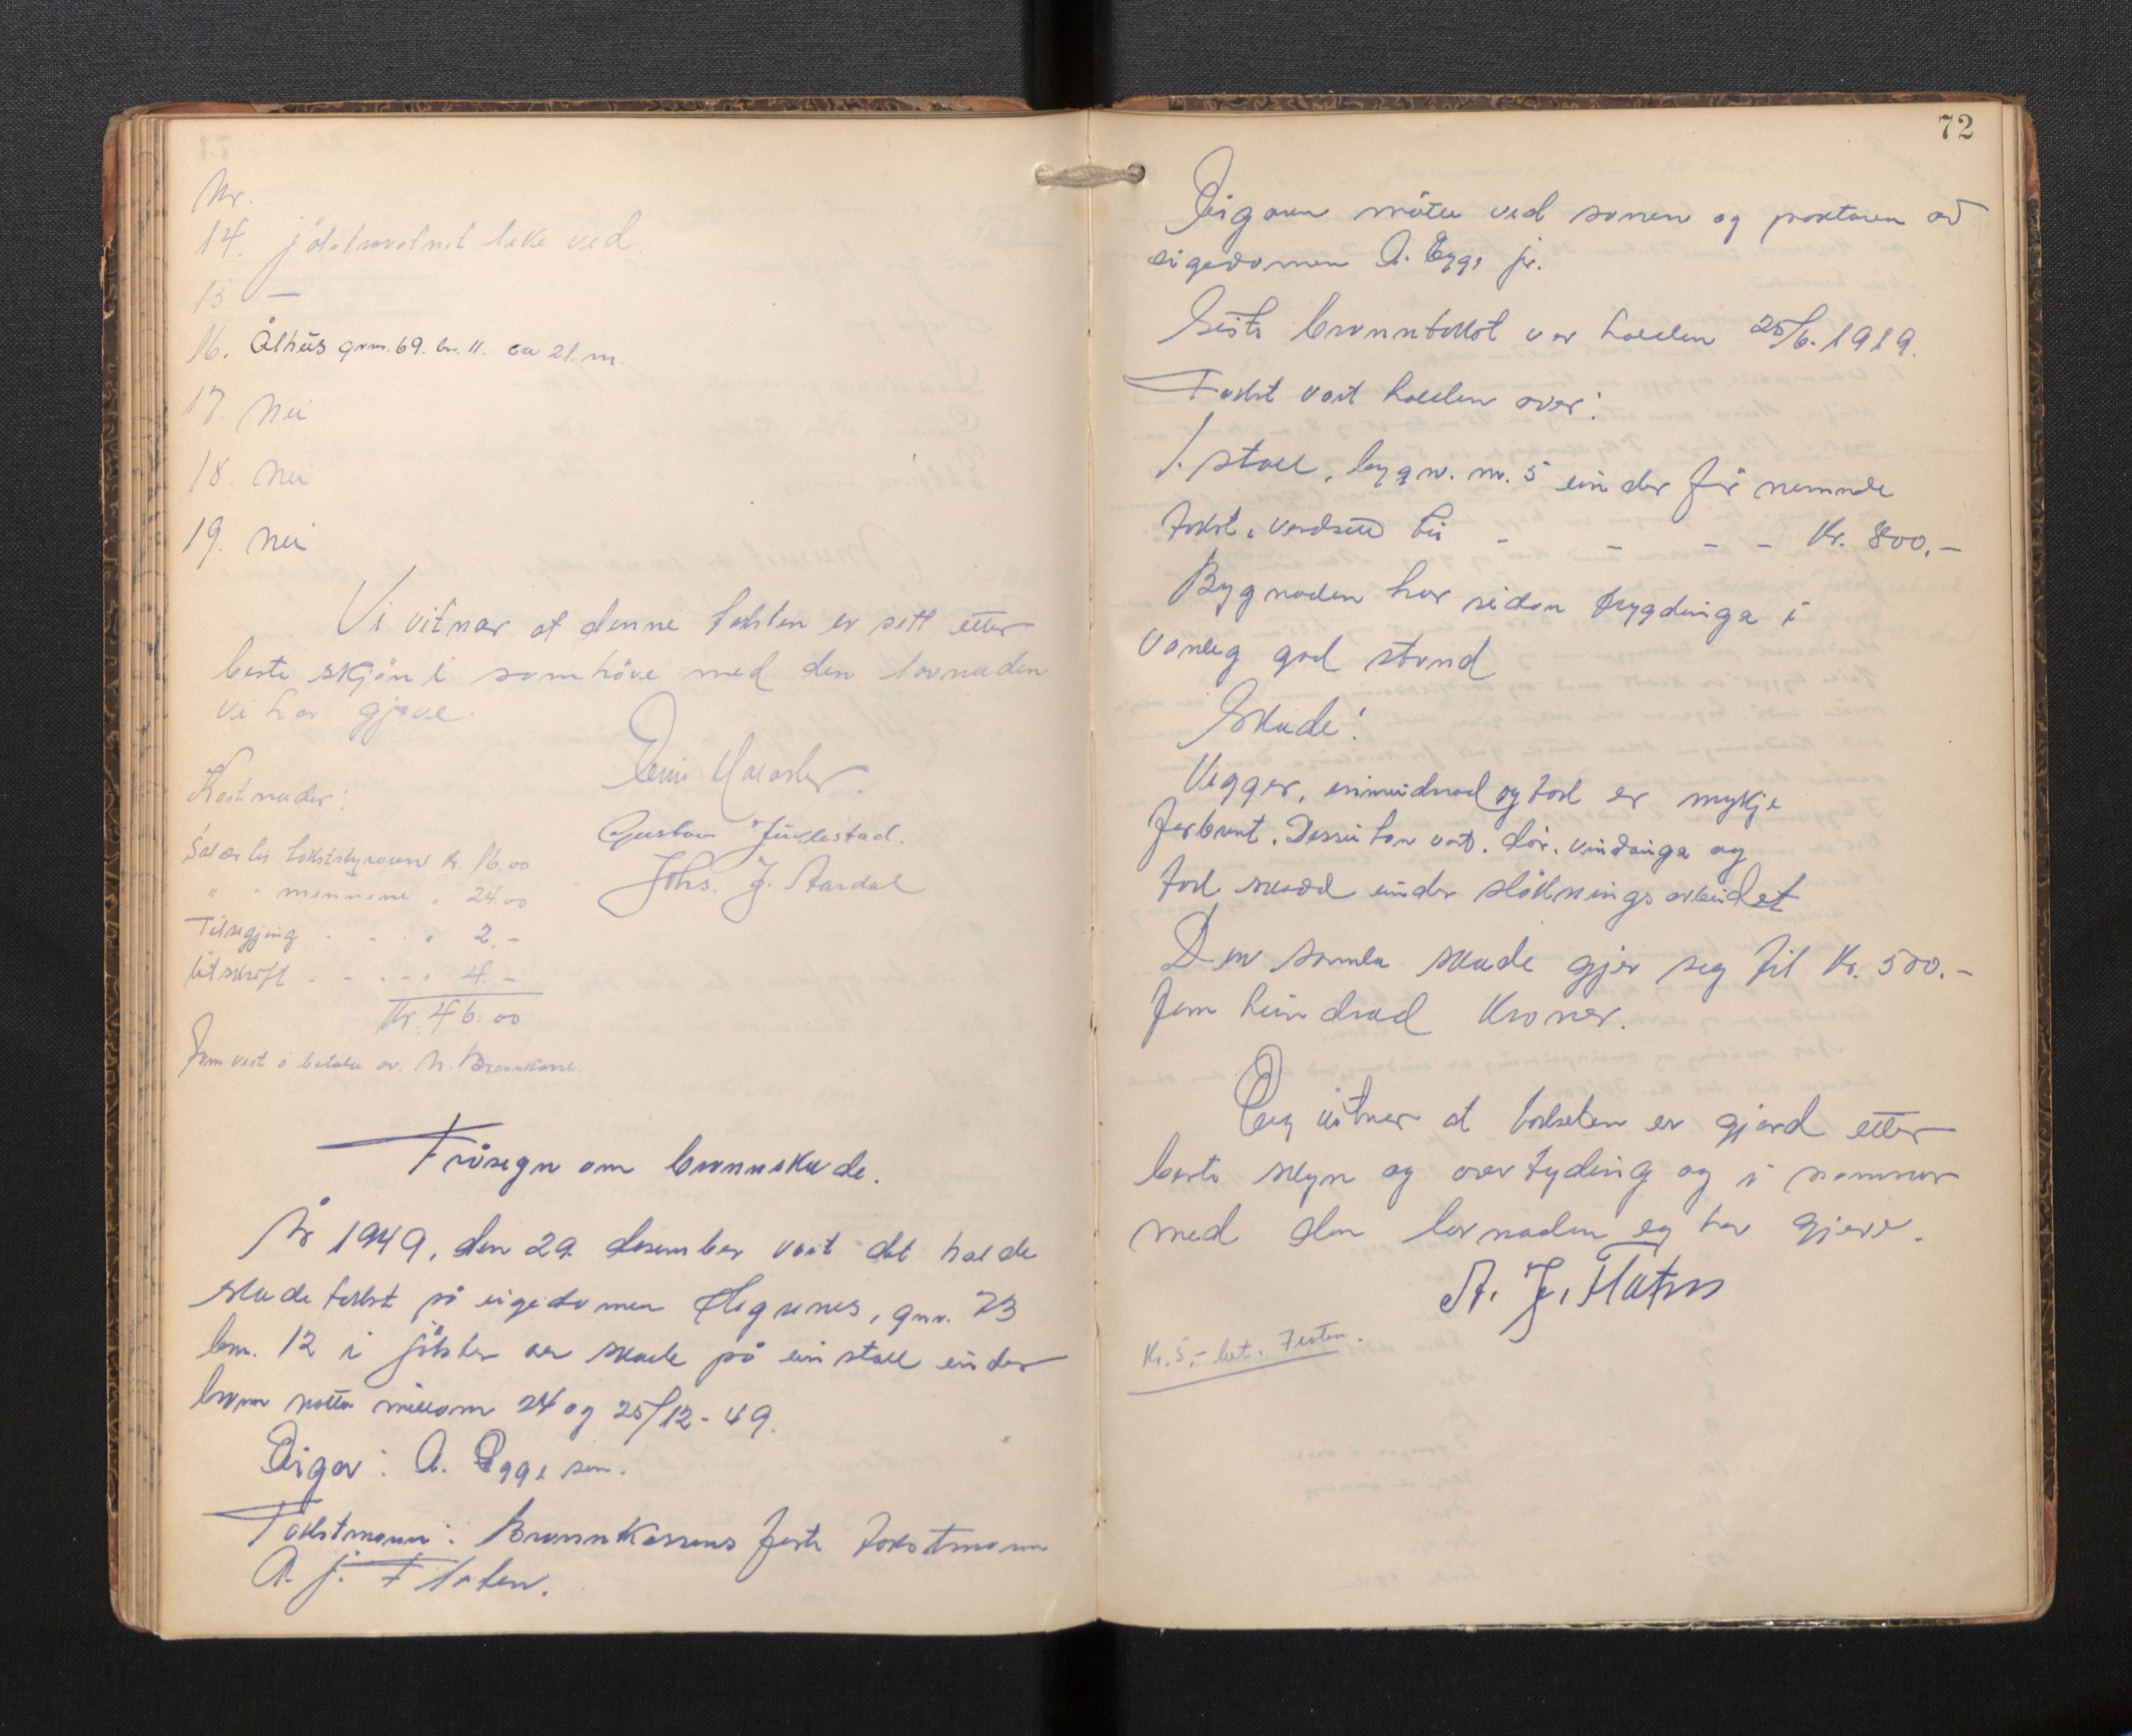 Nr.
14. Jölstravatnet like ved.
15 —
16. Ålhus gnr. 69. br. 11. ca 21. m.
17. Nei
18. Nei
19. Nei
Vi vitnar at denne taksten er sett etter
beste skjön i samhöve med den lovnaden
vi har gjeve.
Kostnader:
Gustav
Johs. J. Aardal
Salær til takststyraren kr. 16.00
" " mennene " 24.00
Tilsegjing - - - " 2.-
Utskrift - - - - " 4.-
Kr. 46.00
Som vert å betala av N. Brannkasse.
Fråsegn om brannskade.
År 1949, den 29. desember vart det halde
skadetakst på eigedomen, gnr. 73
bnr. 12 i Jölster over skade på ein stall under
brann natta millom 24 og 25/12-49.
Eigar: A. Egge sen.
Takstmann: Brannkassens faste takstmann
A. J. Flaten.
72
Eigaren møtte ved sonen og paktaren av
eigedomen A. Egge jr.
Siste branntakst var halden 25/6-1919.
Takst vart halden over:
1. stall, bygn. nr. 5 under før nemnde
takst, verdsett til - - - - Kr. 800.-
Bygnaden har sidan trygdinga i
vanleg god stand
Skade:
Vegger, innreidnad og tak er mykje
forbrent. Dessutan vart dör, vindauga og
tak skadd under slökningsarbeidet
Den samla skade gjer seg til Kr. 500.-
fem hundrad kroner.
Eg vitnar at taksten er gjord etter
beste skyn og overtyding og i samsvar
med den lovnaden eg har gjeve.
A. J. Flaten
Kr. 5,- bet. Flaten.